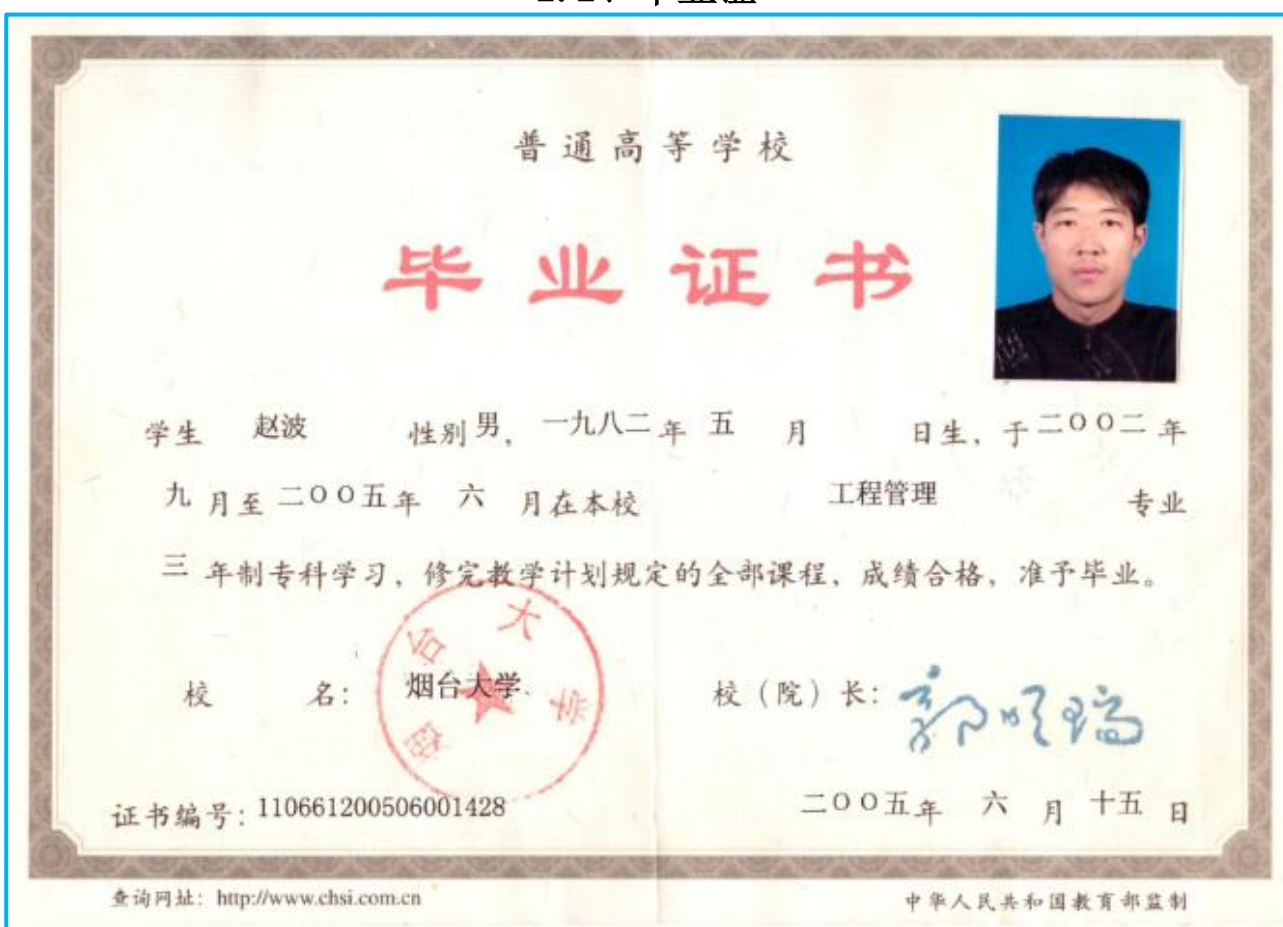 普通高等学校
毕业证书
学生 赵波 性别 男, 一九八二 年 五 月 日生, 于 二〇〇二 年
九 月至 二〇〇五 年 六 月在本校 工程管理 专业
三 年制专科学习, 修完教学计划规定的全部课程, 成绩合格, 准予毕业。
烟台大学
校 名: 烟台大学 校(院)长: 郭明瑞
证书编号: 110661200506001428 二〇〇五 年 六 月 十五 日
查询网址: http://www.chsi.com.cn 中华人民共和国教育部监制